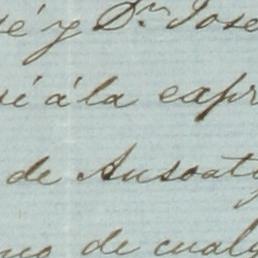 sé y Dn. José
sé á la expr
de Ansoat
de cualq